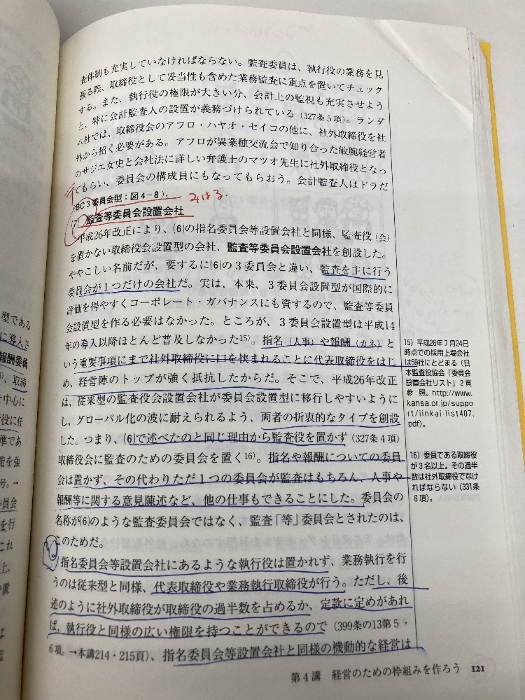 査体制も充実していなければならない。監査委員は、執行役の業務を見
張る際、取締役として妥当性も含めた業務監査に重点を置いてチェック
する。また、執行役の権限が大きい分、会計上の監視も充実させよう
と、特に会計監査人の設置が義務づけられている(327条5項)。ランダ
ム社では、取締役会のアフロ・ハヤオ・セイコの他に、社外取締役を社
外から招く必要がある。アフロが異業種交流会で知り合った敏腕経営者
のサジエ女史と会社法に詳しい弁護士のマツオ先生に社外取締役となっ
てもらい、委員会の構成員にもなってもらおう。会計監査人はドラだ
(BC3委員会型:図4-8)。
(7) 監査等委員会設置会社
平成26年改正により、(6)の指名委員会等設置会社と同様、監査役(会)
を置かない取締役会設置型の会社、監査等委員会設置会社を創設した。
ややこしい名前だが、要するに(6)の3委員会と違い、監査を主に行う
委員会が1つだけの会社だ。実は、本来、3委員会設置型が国際的に
評価を得やすくコーポレート・ガバナンスにも資するので、監査等委員
会設置型を作る必要はなかった。ところが、3委員会設置型は平成14
年の導入以降ほとんど普及しなかった15)。指名(人事)や報酬(カネ)と
いう重要事項にまで社外取締役に口を挟まれることに代表取締役をはじ
め、経営陣のトップが強く抵抗したからだ。そこで、平成26年改正
は、従来型の監査役会設置会社が委員会設置型に移行しやすいようにに
し、グローバル化の波に耐えられるよう、両者の折衷的なタイプを創設
した。つまり、(6)で述べたのと同じ理由から監査役を置かず(327条4項)
取締役会に監査のための委員会を置く16)。指名や報酬についての委員
会は置かず、その代わりただ1つの委員会が監査はもちろん、人事や
報酬等に関する意見陳述など、他の仕事もできることにした。委員会の
名称が(6)のような監査委員会ではなく、監査「等」委員会とされたのは、
このためだ。
指名委員会等設置会社にあるような執行役は置かれず、業務執行を行
うのは従来型と同様、代表取締役や業務執行取締役が行う。ただし、後
述のように社外取締役が取締役の過半数を占めるか、定款に定めがあれ
ば、執行役と同様の広い権限を持つことができるので(399条の13第5・
6項。→本講214・215頁)、指名委員会等設置会社と同様の機動的な経営は
15) 平成26年7月24日
時点での採用上場会社
は58社にとどまる(日
本監査役協会「委員会
設置会社リスト」2頁
参照。http://www.
kansa.or.jp/suppo
rt/iinkai-list407.
pdf)。
16) 委員である取締役
が3名以上、その過半
数は社外取締役でなけ
ればならない(331条
6項)。
第4講 経営のための枠組みを作ろう 121